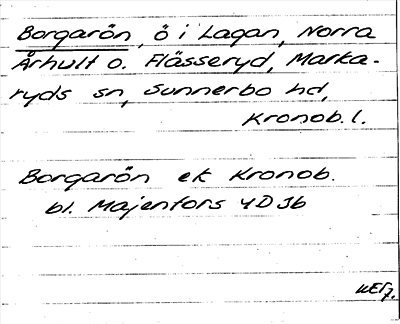 Borgarön, ö i Lagan, Norra
Århult o. Flässeryd, Marka-
ryds sn, Sunnerbo hd,
Kronob. l.
Borgarön ek Kronob.
bl. Majenfors 4D Jb